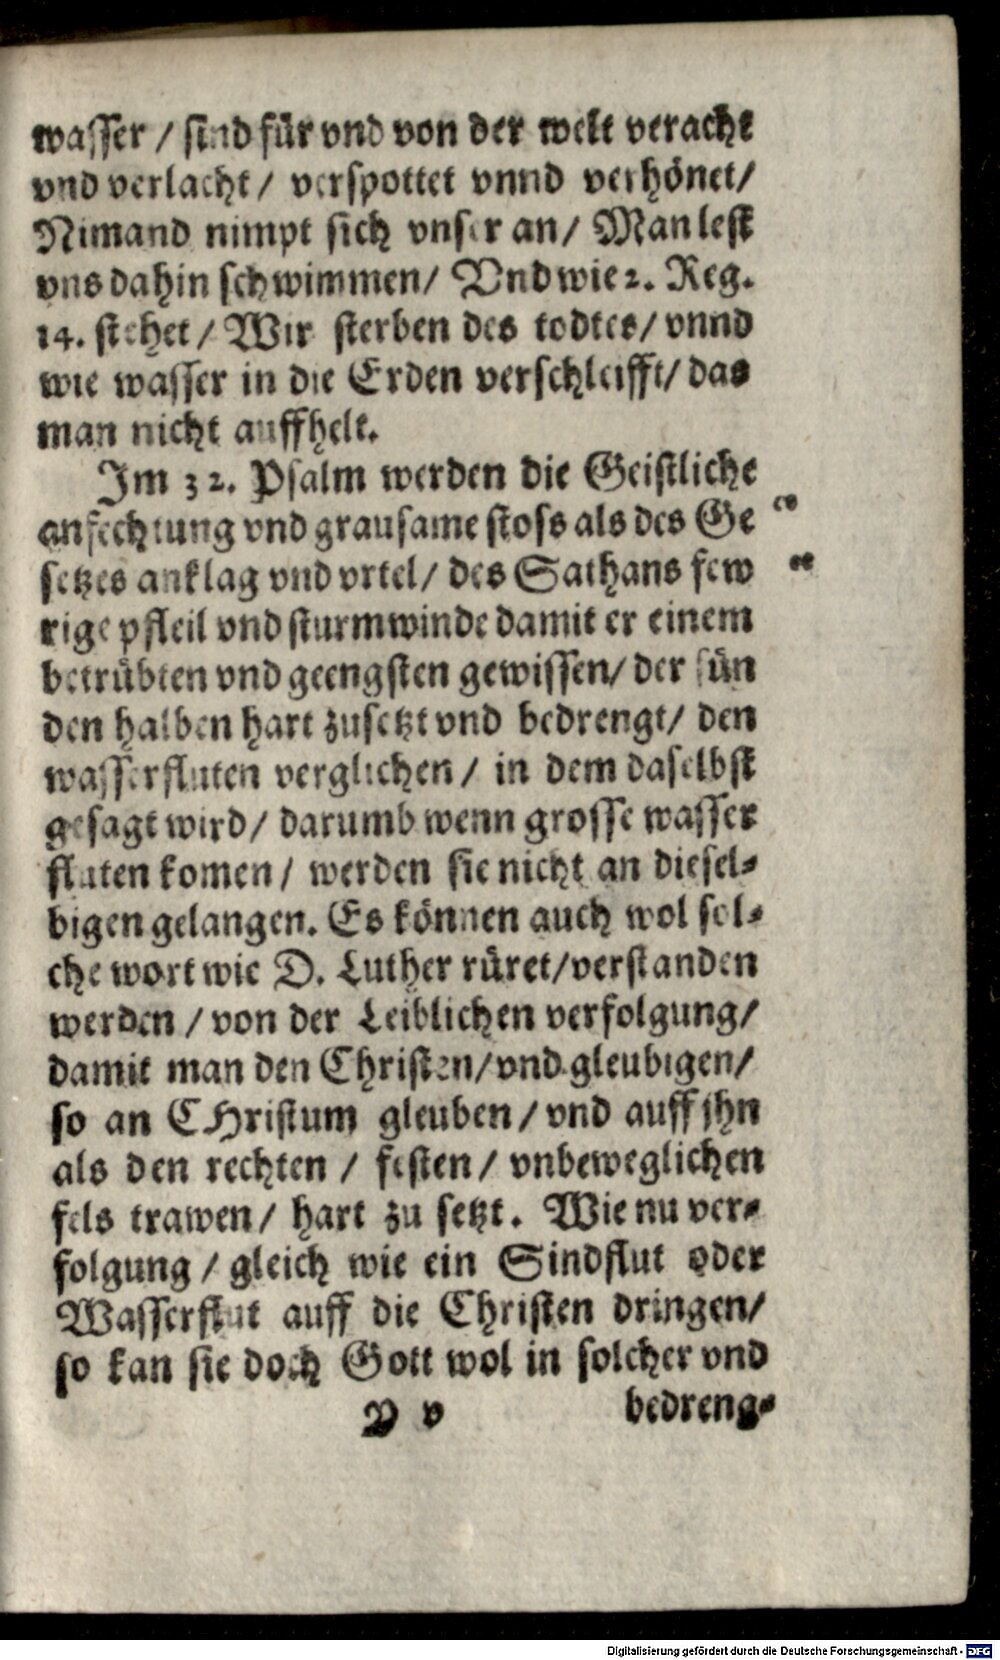 wasser / sind für vnd von der welt veracht
vnd verlacht / verspottet vnnd verhönet /
Nimand nimpt sich vnser an / Man lest
vns dahin schwimmen / Vnd wie 2. Reg.
14. stehet / Wir sterben des todtes / vnnd
wie wasser in die Erden verschleifft / das
man nicht auffhelt.
Im 32. Psalm werden die Geistliche
anfechtung vnd grausame stoss als des Ge
setzes anklag vnd vrtel / des Sathans few
rige pfleil vnd sturmwinde damit er einem
betrübten vnd geengsten gewissen / der sün
den halben hart zusetzt vnd bedrengt / den
wasserfluten verglichen / in dem daselbst
gesagt wird / darumb wenn grosse wasser
fluten komen / werden sie nicht an diesel-
bigen gelangen. Es können auch wol sol-
che wort wie D. Luther rüret / verstanden
werden / von der Leiblichen verfolgung /
damit man den Christen / vnd gleubigen /
so an CHristum gleuben / vnd auff jhn
als den rechten / festen / vnbeweglichen
fels trawen / hart zu setzt. Wie nu ver-
folgung / gleich wie ein Sindflut oder
Wasserflut auff die Christen dringen /
so kan sie doch Gott wol in solcher vnd
Y v bedreng-
Digitalisierung gefördert durch die Deutsche Forschungsgemeinschaft - DFG